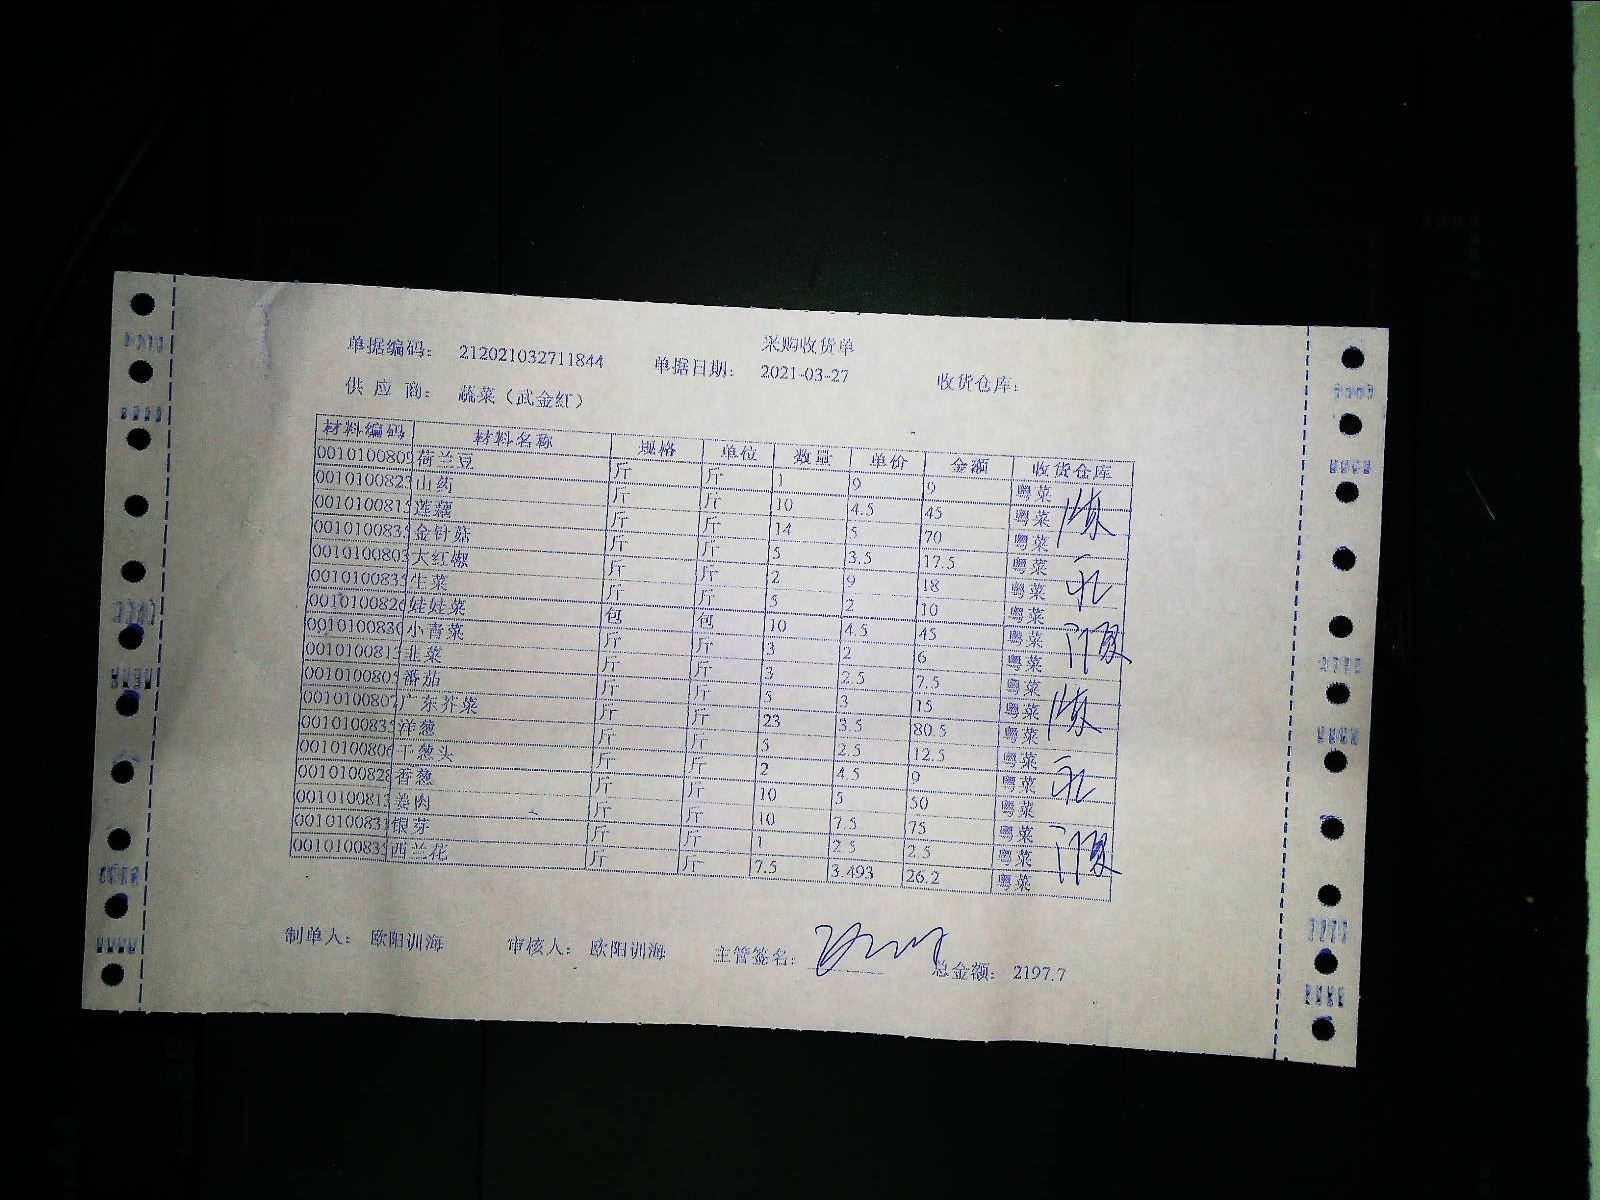 采购收货单
单据编码： 212021032711844 单据日期： 2021-03-27 收货仓库：
供 应 商： 蔬菜（武金红）
材料编码 材料名称 规格 单位 数量 单价 金额 收货仓库
0010100809 荷兰豆 斤 斤 1 9 9 粤菜
0010100823 山药 斤 斤 10 4.5 45 粤菜
001010081 莲藕 斤 斤 14 5 70 粤菜
001010083 金针菇 斤 斤 5 3.5 17.5 粤菜
0010100803 大红椒 斤 斤 2 9 18 粤菜
001010083 生菜 斤 斤 5 2 10 粤菜
001010082 娃娃菜 包 包 10 4.5 45 粤菜
001010083 小青菜 斤 斤 3 2 6 粤菜
001010081 韭菜 斤 斤 3 2.5 7.5 粤菜
001010080 番茄 斤 斤 5 3 15 粤菜
001010080 广东芥菜 斤 斤 23 3.5 80.5 粤菜
001010083 洋葱 斤 斤 5 2.5 12.5 粤菜
001010080 干葱头 斤 斤 2 4.5 9 粤菜
001010082 香葱 斤 斤 10 5 50 粤菜
001010081 姜肉 斤 斤 10 7.5 75 粤菜
001010083 银芽 斤 斤 1 2.5 2.5 粤菜
001010083 西兰花 斤 斤 7.5 3.493 26.2 粤菜
制单人： 欧阳训海 审核人： 欧阳训海 主管签名： 总金额： 2197.7